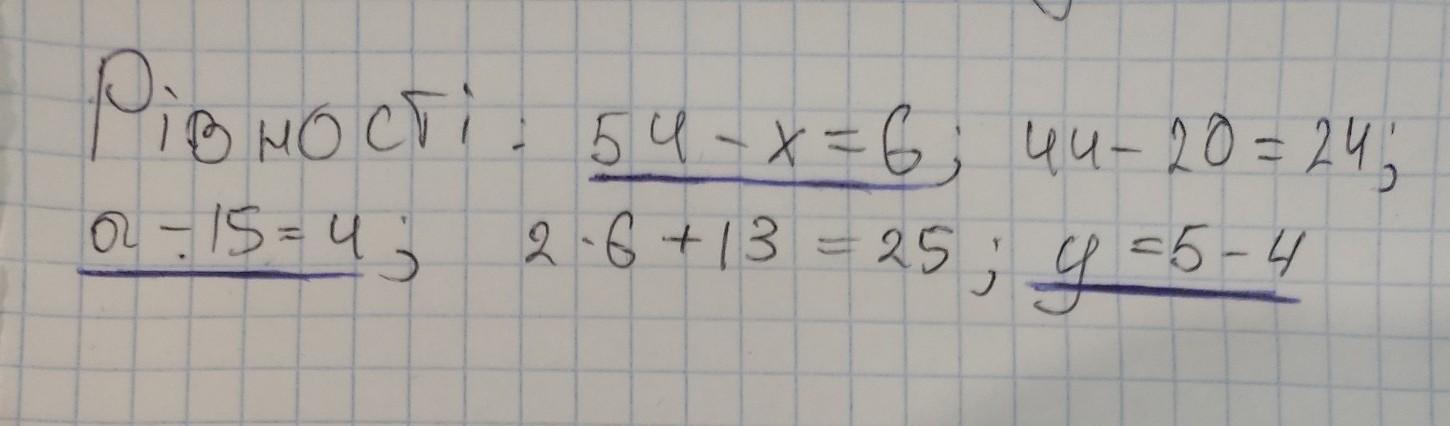 Рівності: 54 - x = 6; 44 - 20 = 24;
a : 15 = 4; 2 · 6 + 13 = 25; y = 5 - 4